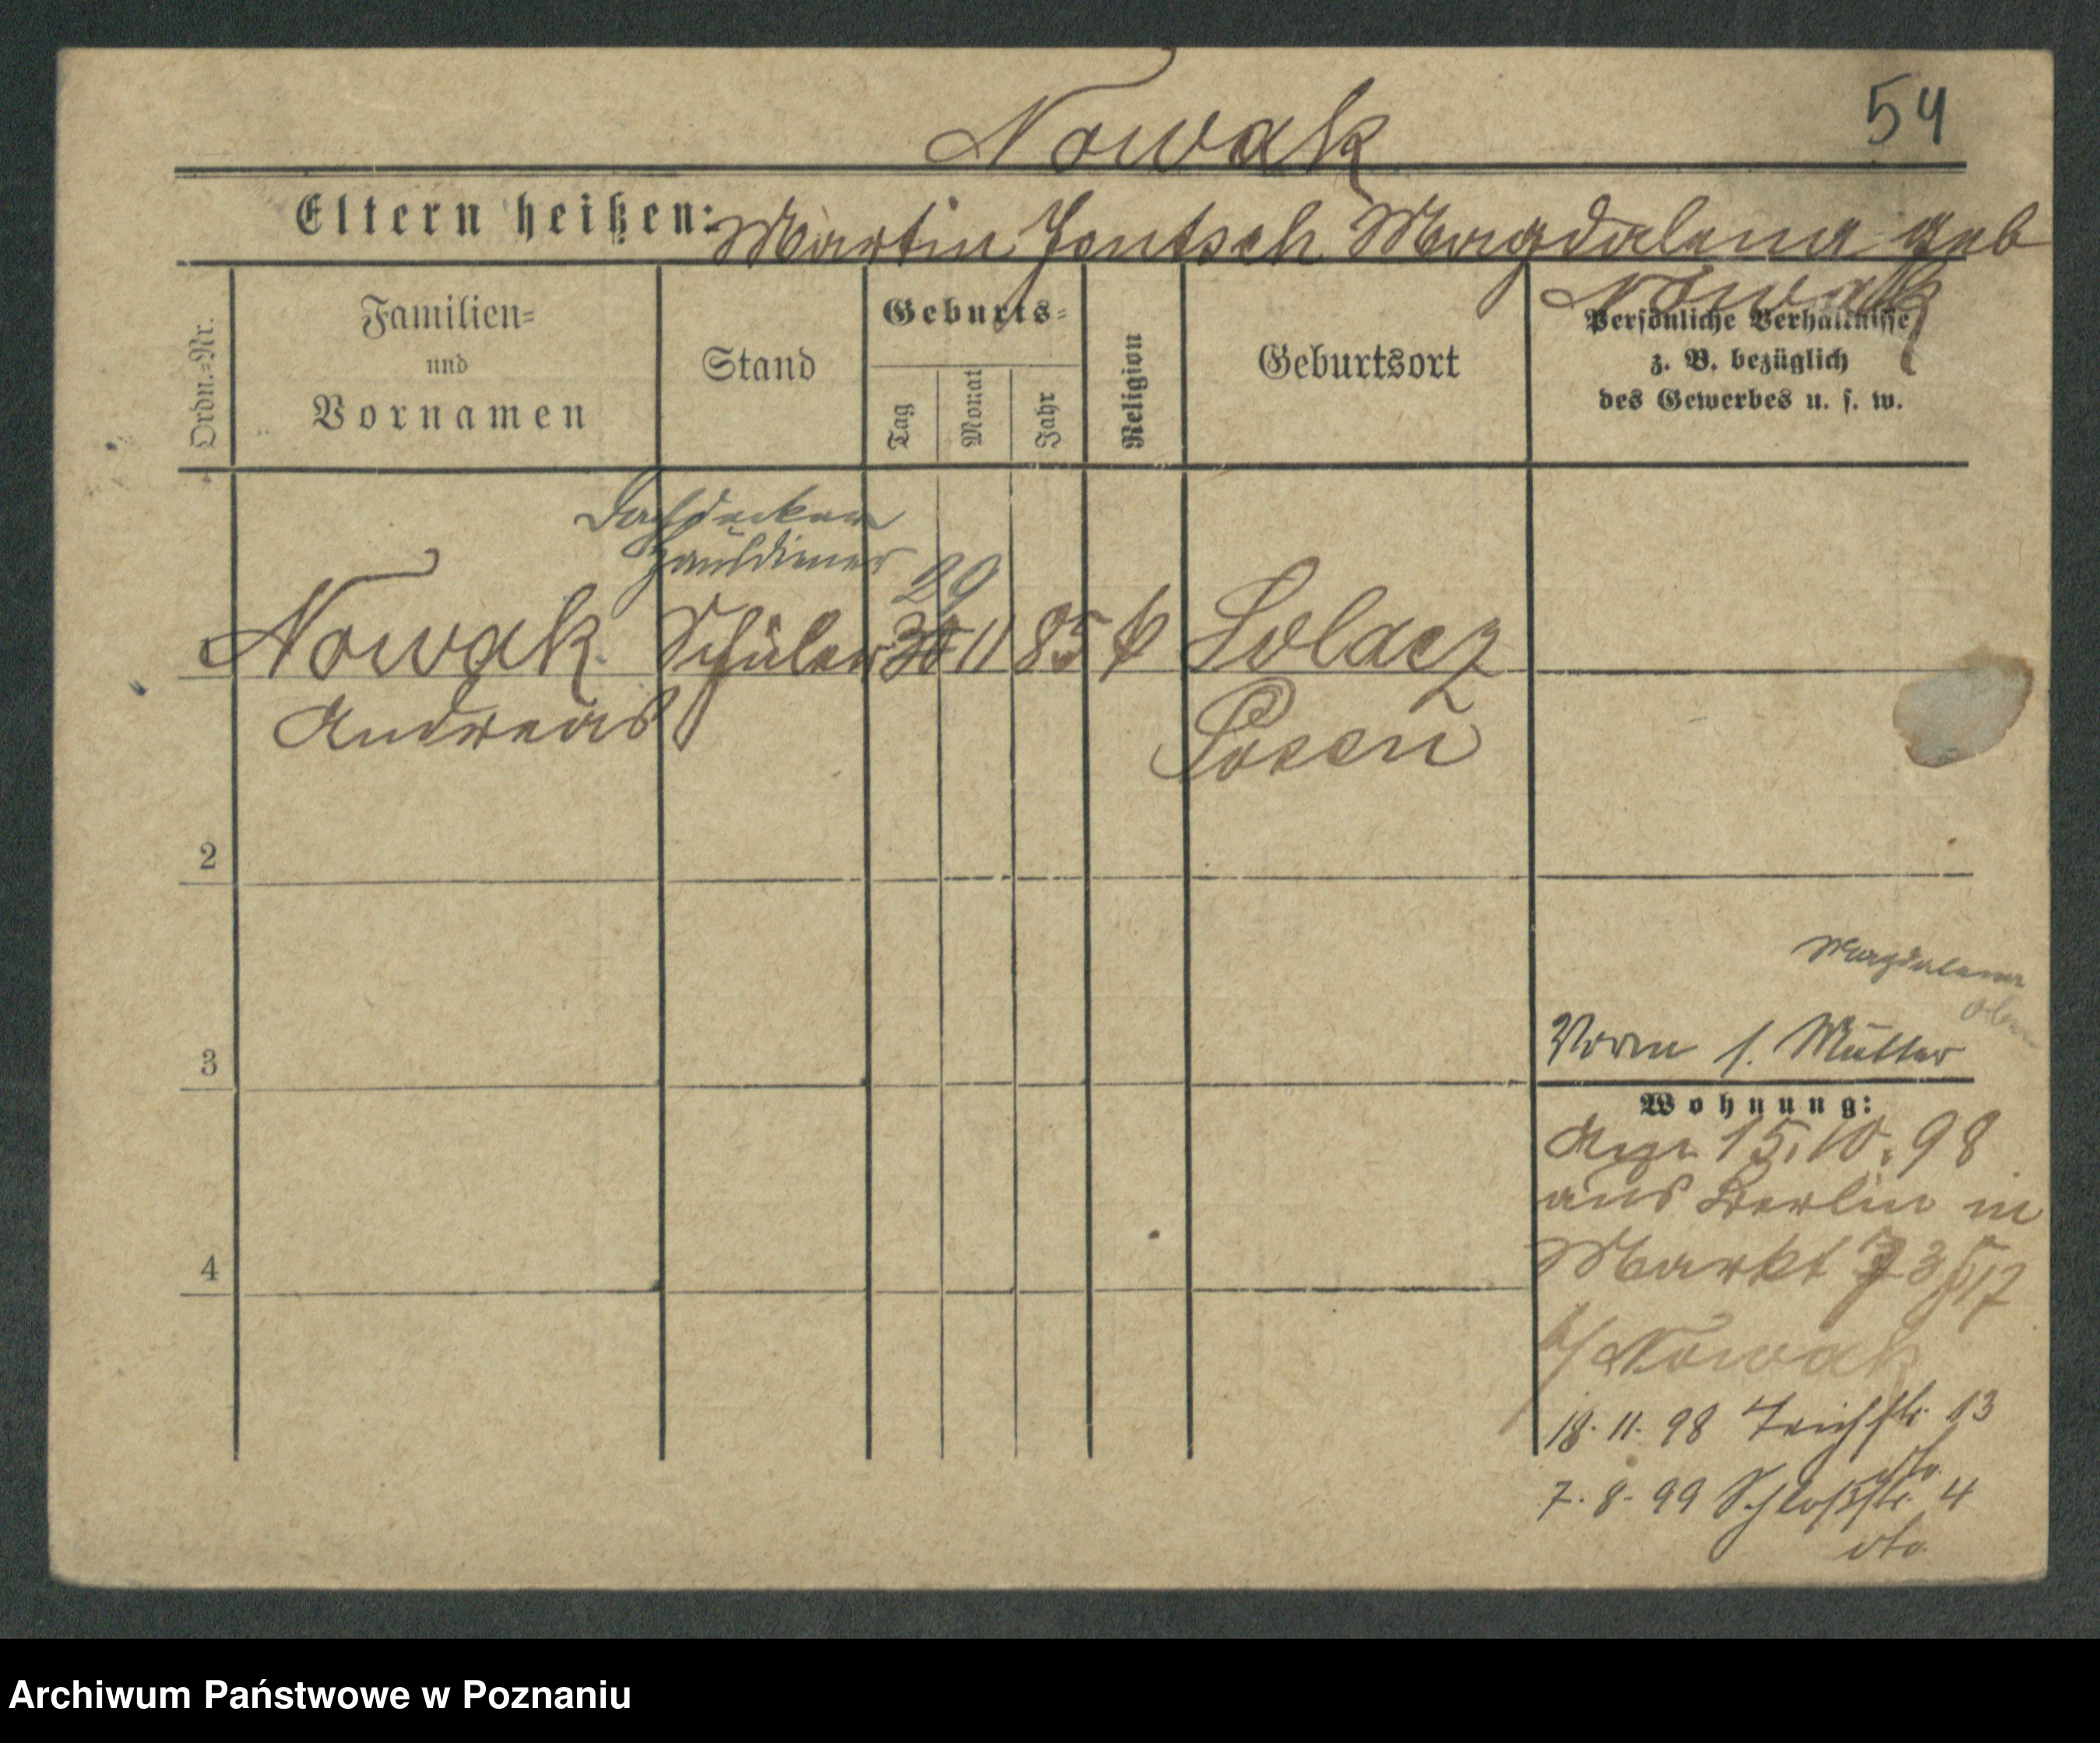 54
Nowak
Eltern heißen: Martin Jentsch Magdalena geb
Nowak
Ordn.-Nr.
Familien-
und
Vornamen
Stand
Geburts-
Tag
Monat
Jahr
Religion
Geburtsort
Persönliche Verhältnisse
z. B. bezüglich
des Gewerbes u. s. w.
Dachdecker
Hausdiener
29
1 Nowak Schüler 30 11 85 k Solacz
Andreas Posen
2
Magdalena
3 Vorm s. Mutter
Wohnung:
Ang. 15.10.98
aus Berlin in
4 Markt 73
b/ Nowak
18. 11. 98 Teichstr. 13
dto
7. 8. 99 Schloßstr. 4
dto
Archiwum Państwowe w Poznaniu